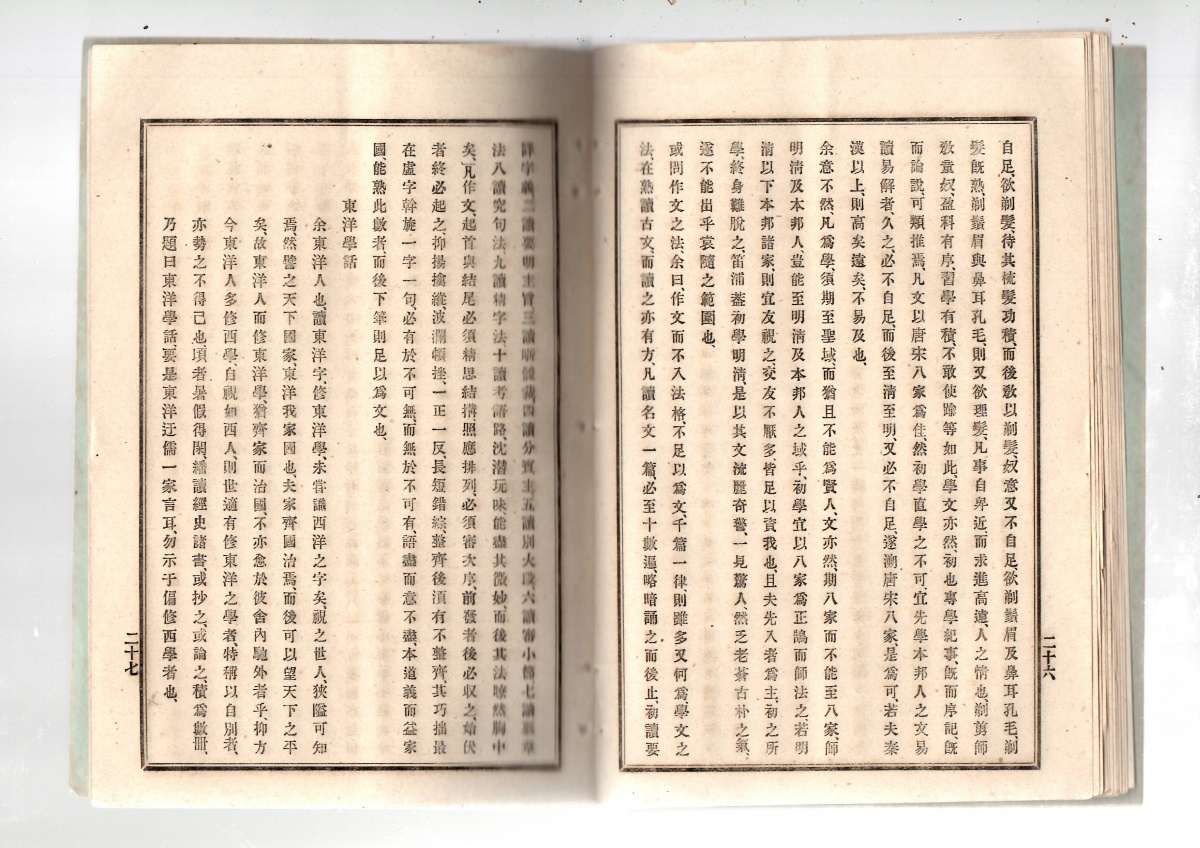 自足、欲剃髮、待其梳髮功積、而後敎以剃髮、奴意又不自足、欲剃鬚眉及鼻耳孔毛、剃
髮旣熟、剃鬚眉與鼻耳孔毛、則又欲理髮、凡事自卑近而求進高遠、人之情也、剃剪師
敎童奴、盈科有序、習學有積、不敢使踰等如此、學文亦然、初也專學紀事、旣而序記、旣
而論說、可類推焉、凡文以唐宋八家爲佳、然初學直學之不可、宜先學本邦人之文易
讀易解者、久之、必不自足、而後至淸至明、又必不自足、遂溯唐宋八家、是爲可、若夫秦
漢以上、則高矣遠矣、不易及也、
余意不然、凡爲學、須期至聖域、而猶且不能爲賢人、文亦然、期八家而不能至八家、師
明淸及本邦人、豈能至明淸及本邦人之域乎、初學宜以八家爲正鵠而師法之、若明
淸以下本邦諸家、則宜友視之、交友不厭多、皆足以資我也、且夫先入者爲主、初之所
學、終身難脫之、笛浦蓋初學明淸、是以其文流麗奇警、一見驚人、然乏老蒼古朴之氣、
遂不能出乎袁隨之範圍也、
或問作文之法、余曰、作文而不入法格、不足以爲文、千篇一律則雖多又何爲、學文之
法、在熟讀古文、而讀之亦有方、凡讀名文一篇、必至十數遍、略暗誦之而後止、初讀要
二十六
詳字義、二讀要明主旨、三讀體裁、四讀分賓主、五讀別大段、六讀審小節、七讀章
法、八讀究句法、九讀精字法、十讀考語路、沈潛玩味、能盡其微妙、而後其法瞭然胸中
矣、凡作文、起首與結尾必須精思結搆、照應排列、必須審次序、前發者後必收之、始伏
者終必起之、抑揚擒縱、波瀾頓挫、一正一反、長短錯綜、整齊後須有不整齊、其巧拙最
在虛字斡旋、一字一句、必有於不可無、而無於不可有、語盡而意不盡、本道義而益家
國、能熟此數者、而後下筆則足以爲文也、
東洋學話
余東洋人也、讀東洋字、修東洋學、未甞讖西洋之字矣、視之世人、狹隘可知
焉、然譬之天下國家、東洋我家國也、夫家齊國治焉、而後可以望天下之平
矣、故東洋人而修東洋學、猶齊家而治國、不亦愈於彼舍內馳外者乎、抑方
今東洋人多修西學、自視如西人、則世適有修東洋之學者、特稱以自別者、
亦勢之不得已也、頃者暑假得閑、繙讀經史諸書、或抄之、或論之、積爲數冊、
乃題曰東洋學話、要是東洋迂儒一家言耳、勿示于偏修西學者也、
二十七